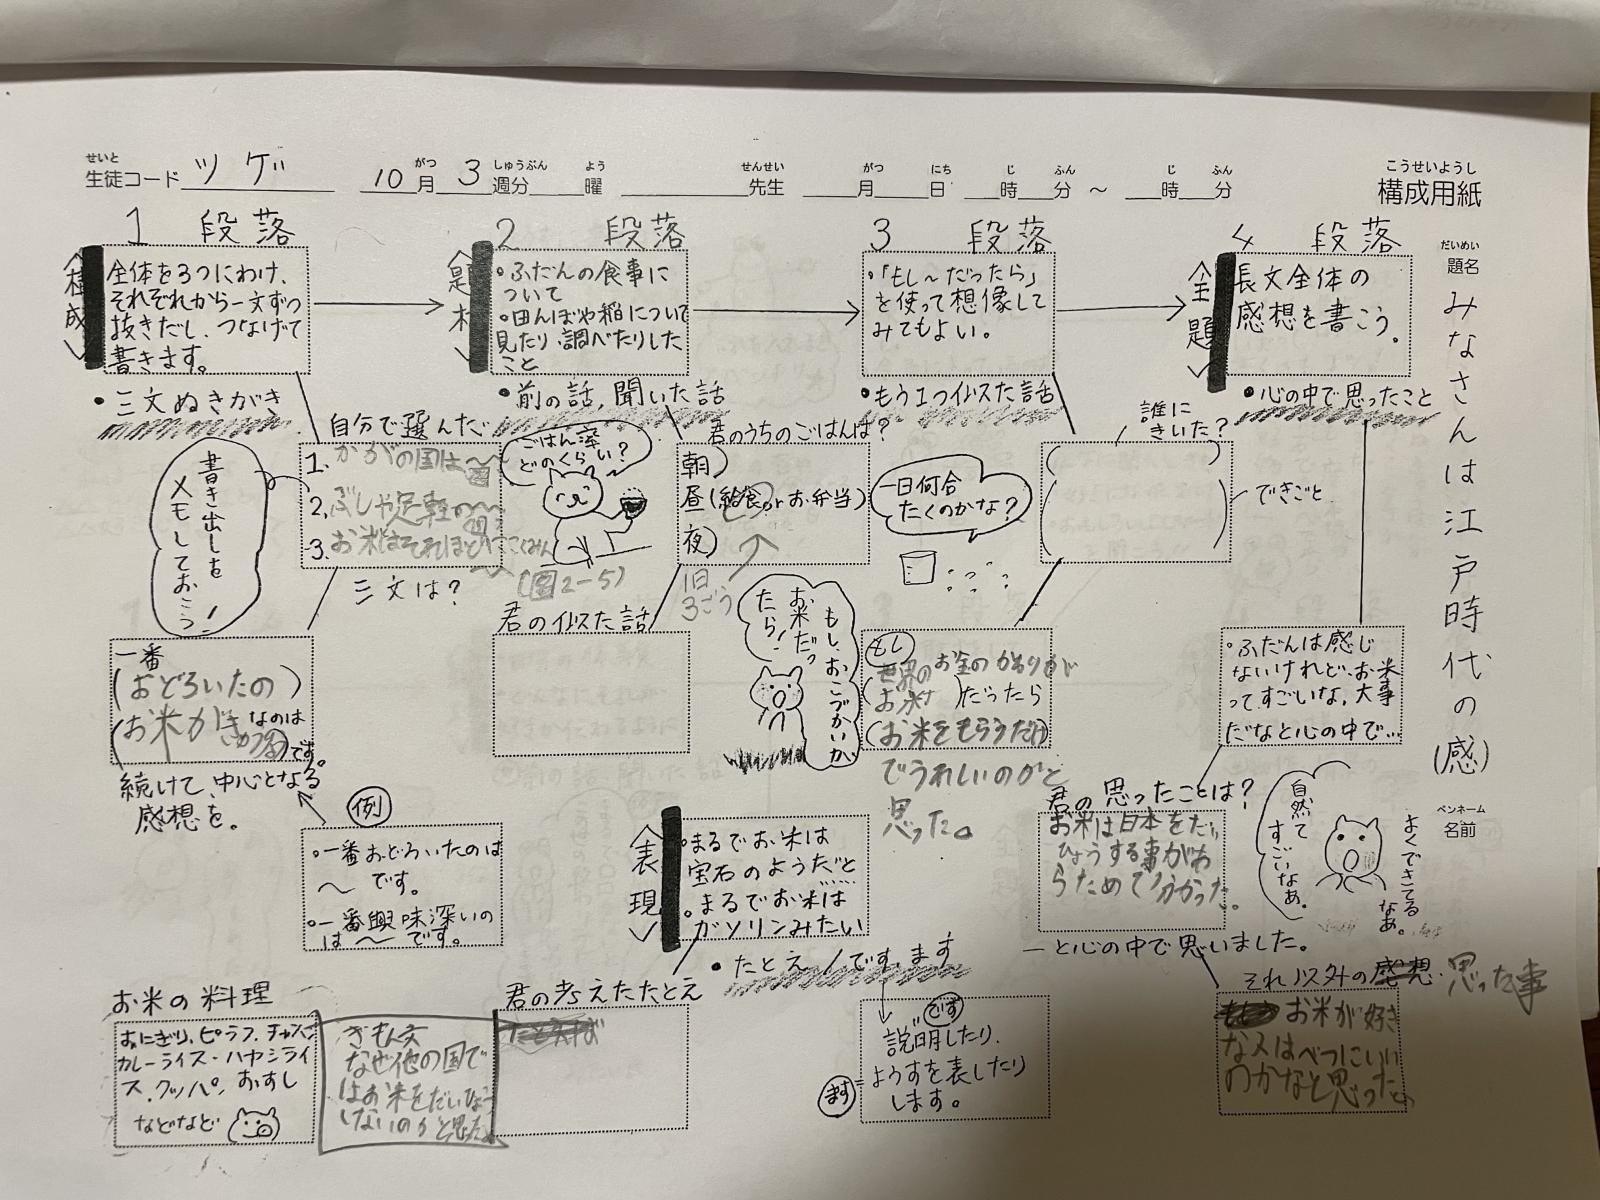 せいと
生徒コード ツゲ 10月 3週分 曜 先生 月 日 時 分 ～ 時 分
がつ しゅうぶん よう せんせい がつ にち じ ふん じ ふん
こうせいようし
構成用紙
だいめい
題名
みなさんは江戸時代の(感)
ペンネーム
名前
1 段落
〈構成〉
全体を3つにわけ、
それぞれから一文ずつ
抜きだし、つなげて
書きます。
・三文ぬきがき
2 段落
〈題材〉
・ふだんの食事に
ついて
・田んぼや稲について
見たり、調べたりした
こと
・前の話、聞いた話
3 段落
・「もし～だったら」
を使って想像して
みてもよい。
・もう1つ似た話
4 段落
〈全題〉
長文全体の
感想を書こう。
・心の中で思ったこと
書き出しを
メモしておこう!
自分で選んだ
1. かがの国は～
2. ぶしや足軽の～
3. お米はそれほど
三文は?
ごはん派
どのくらい?
(図2-5)
君のうちのごはんは?
朝)
昼(給食orお弁当)
夜)
1日
3ごう
一日何合
たくのかな?
誰に
きいた?
できごと
一番
(おどろいたの)
(お米が なのは
です。
続けて、中心となる
感想を。
例
・一番おどろいたのは
～です。
・一番興味深いの
は～です。
君の似た話
もし、おこづかいが
お米だっ
たら!
もし
世界のお金のかわりが
(お米)だったら
(お米をもらうだけ
でうれしいのかと
思った。
・ふだんは感じ
ないけれど、お米
ってすごいな。大事
だなと心の中で…
君の思ったことは?
お米は日本をだい
ひょうする事があ
らためて分かった。
ーと心の中で思いました。
自然て
すごいなあ。
よくできてる
なあ。
〈表現〉
・まるでお米は
宝石のようだと
・まるでお米は
ガソリンみたい
・たとえ/です、ます
です
説明したり、
ます=ようすを表したり
します。
お米の料理
おにぎり、ピラフ、チャーハン
カレーライス・ハヤシライ
ス、クッパ、おすし
などなど
ぎもん文
なぜ他の国で
はお米をだいひょう
しないのかと思った。
君の考えたたとえ
それ以外の 思った事
お米が好き
な人はべつにいい
のかなと思った。